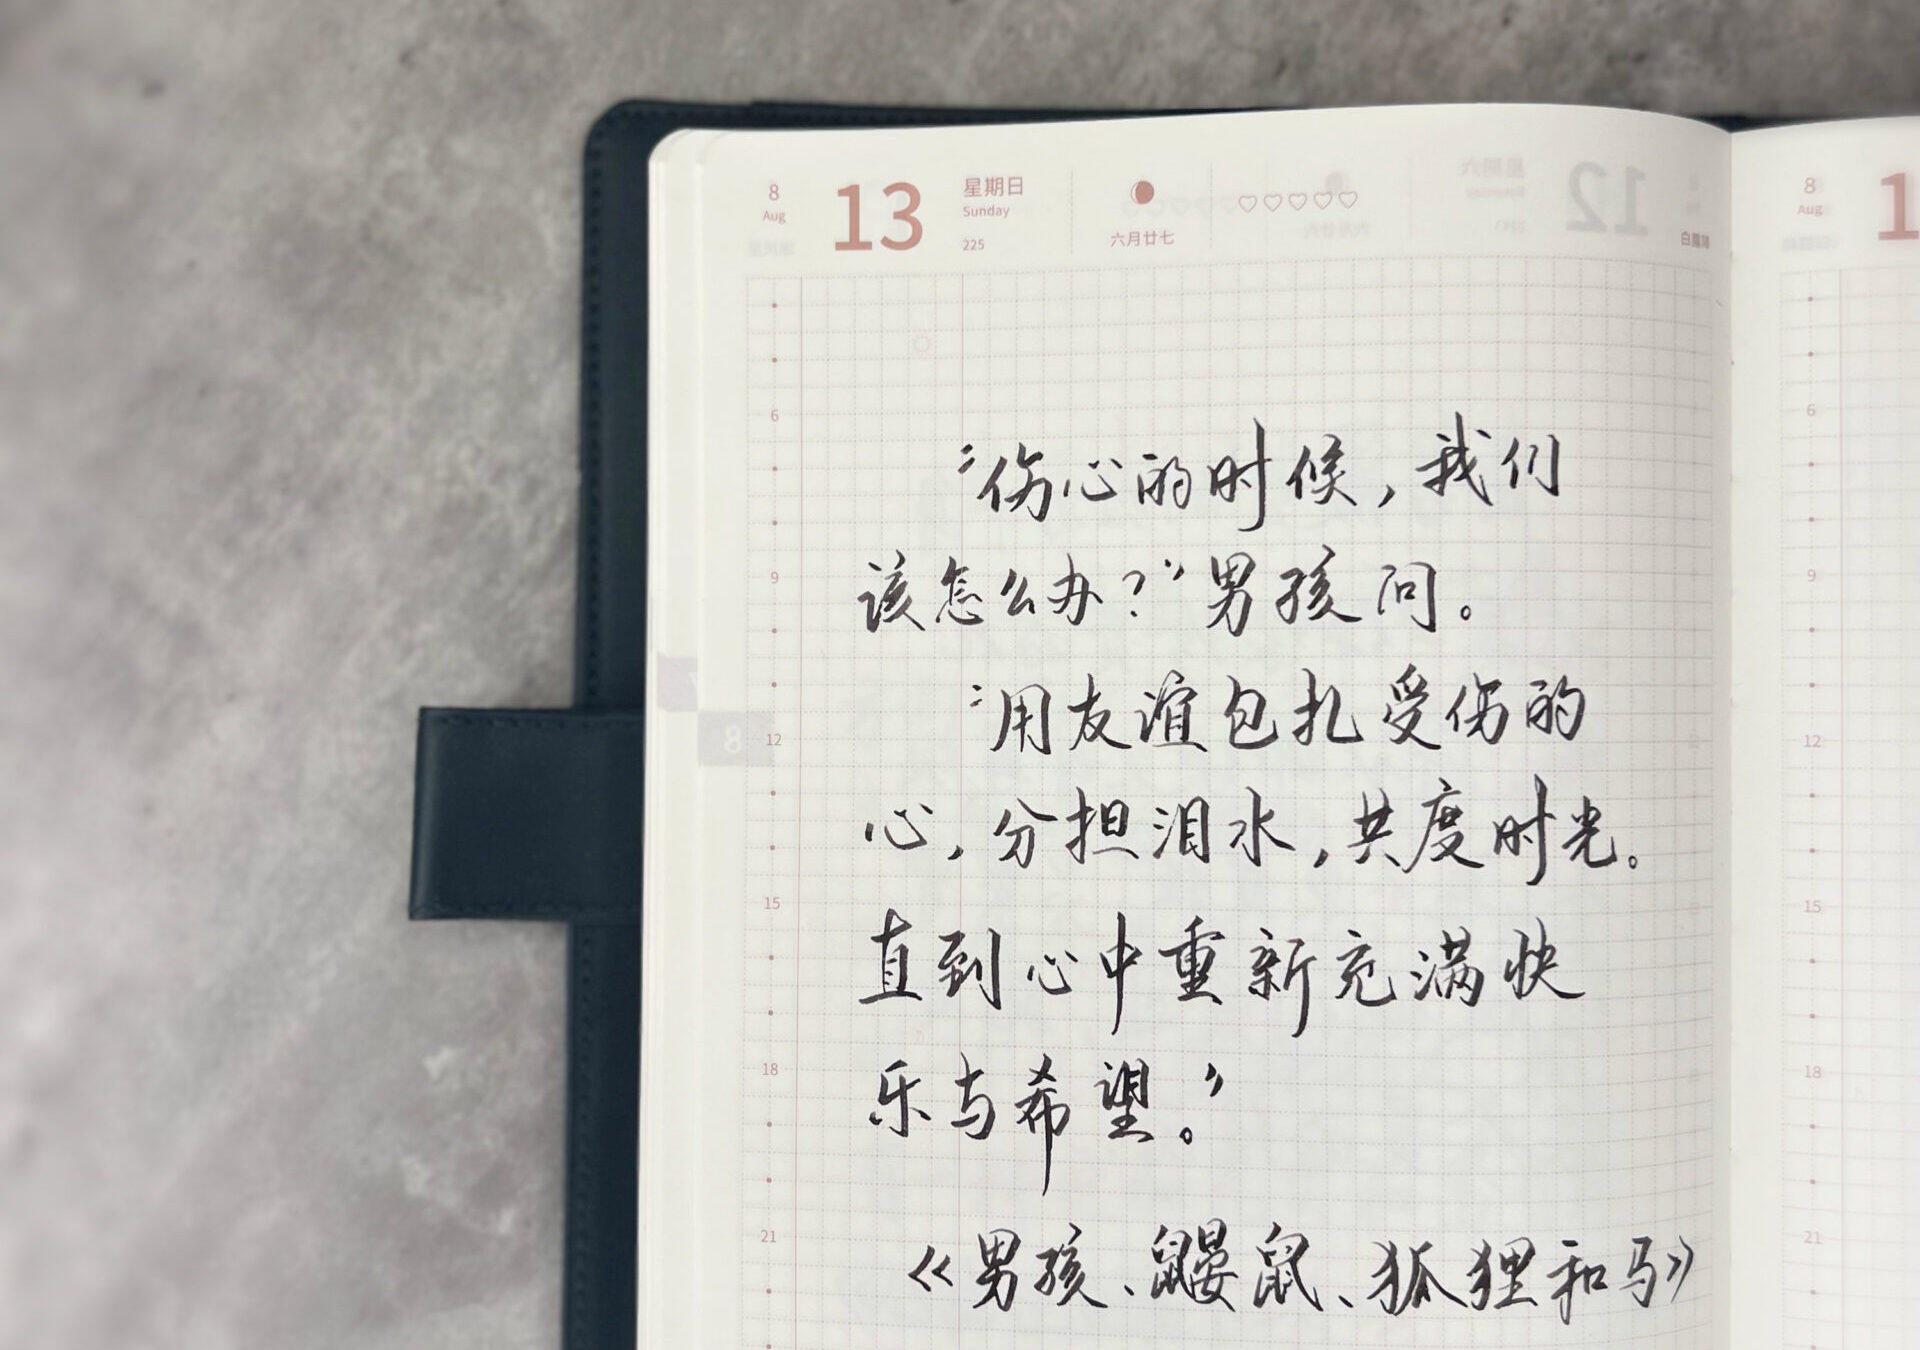 8
Aug
13
星期日
Sunday
225
六月廿七
6
9
12
15
18
21
8
“伤心的时候，我们
该怎么办？”男孩问。
“用友谊包扎受伤的
心，分担泪水，共度时光。
直到心中重新充满快
乐与希望。”
《男孩、鼹鼠、狐狸和马》
12
8
Aug
1
6
9
12
15
18
21